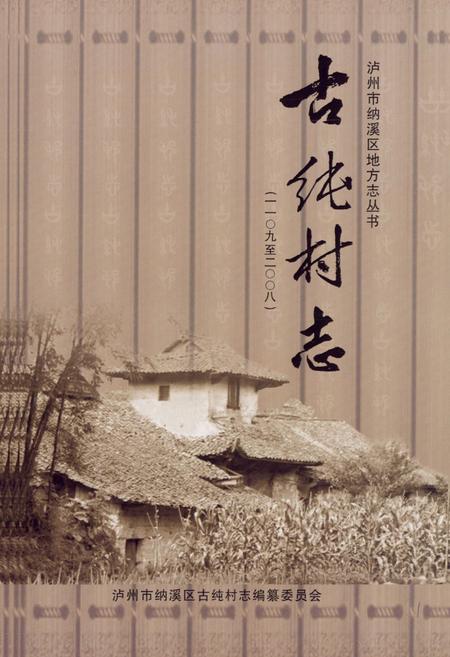 泸州市纳溪区地方志丛书
古纯村志
（一一〇九至二〇〇八）
泸州市纳溪区古纯村志编纂委员会